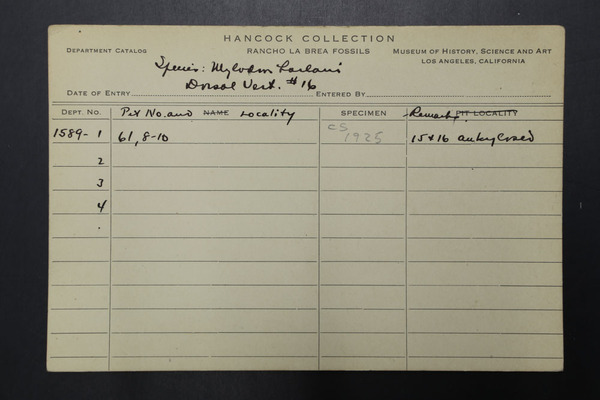 HANCOCK COLLECTION
DEPARTMENT CATALOG RANCHO LA BREA FOSSILS MUSEUM OF HISTORY, SCIENCE AND ART
LOS ANGELES, CALIFORNIA
Species: Mylodon harlani
Dorsal Vert. #16
DATE OF ENTRY ENTERED BY
DEPT. NO. Pit No. and NAME Locality SPECIMEN Remarks PIT LOCALITY
1589- 1 61, 8-10 CS 1925 15 & 16 ankylosed
2
3
4